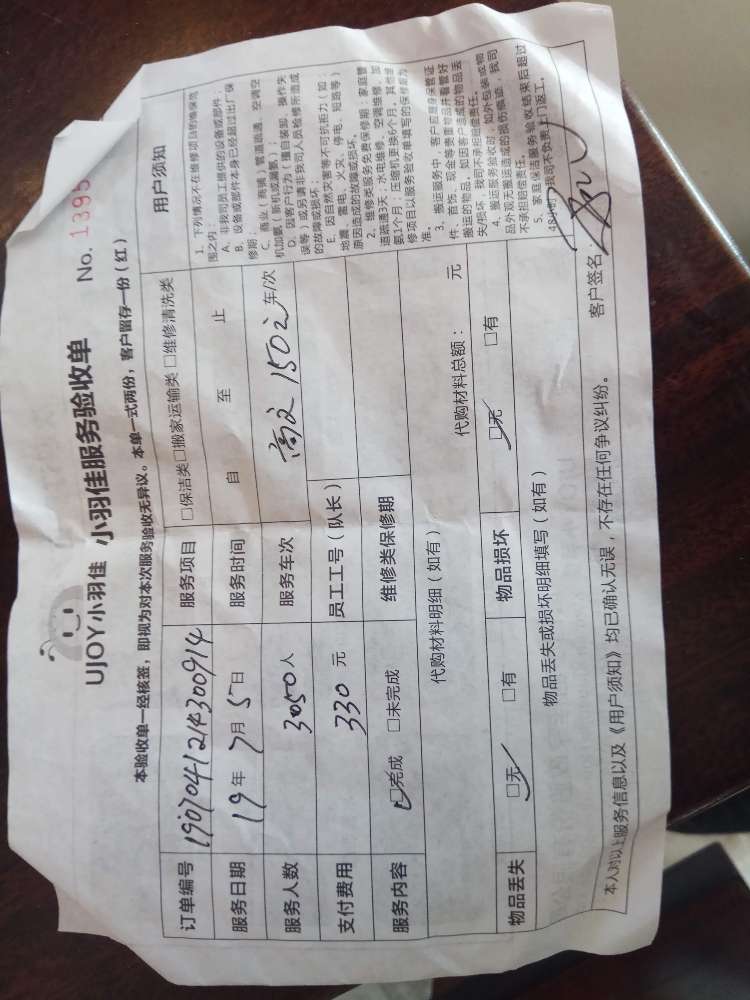 UJOY小羽佳 小羽佳服务验收单 No. 1395
本验收单一经核签，即视为对本次服务验收无异议。本单一式两份，客户留存一份（红）
订单编号 1907041214300914 服务项目 □保洁类□搬家运输类 □维修清洗类
服务日期 19年 7月 5日 服务时间 自 至 止
服务人数 3050人 服务车次 1502 车/次
支付费用 330 元 员工工号（队长）
服务内容 □完成 □未完成 维修类保修期
代购材料明细（如有） 代购材料总额： 元
物品丢失 □无 □有 物品损坏 □无 □有
物品丢失或损坏明细填写（如有）
用户须知
1、下列情况不在维修项目的维保范
围之内：
A、非我司员工提供的设备或部件；
B、设备或部件本身已经超过出厂保
修期；
C、商业（商铺）管道疏通、空调空
机加氨（新机或漏氨）；
D、因客户行为（擅自装卸、操作失
误等）或另请非我司人员检修所造成
的故障或损坏；
E、因自然灾害等不可抗拒力（如：
地震、雷电、火灾、停电、短路等）
原因造成的故障或损坏。
2、维修类服务免费保修期：家庭管
道疏通3天；水电维修、空调维修、加
氨1个月；压缩机更换6个月。其他维
修项目以服务验收单填写的保修期为
准。
3、搬运服务中，客户应是身保管证
件、首饰、现金等贵重物品并看管好
搬运的物品，如因客户造成的物品丢
失/损坏，我司不承担赔偿责任。
4、搬运服务验收时，如外包装或物
品外观无搬运造成的损伤痕迹，我司
不承担赔偿责任。
5、家庭保洁服务验收结束后超过
48小时，我司不负责上门返工。
本人对以上服务信息以及《用户须知》均已确认无误，不存在任何争议纠纷。 客户签名：